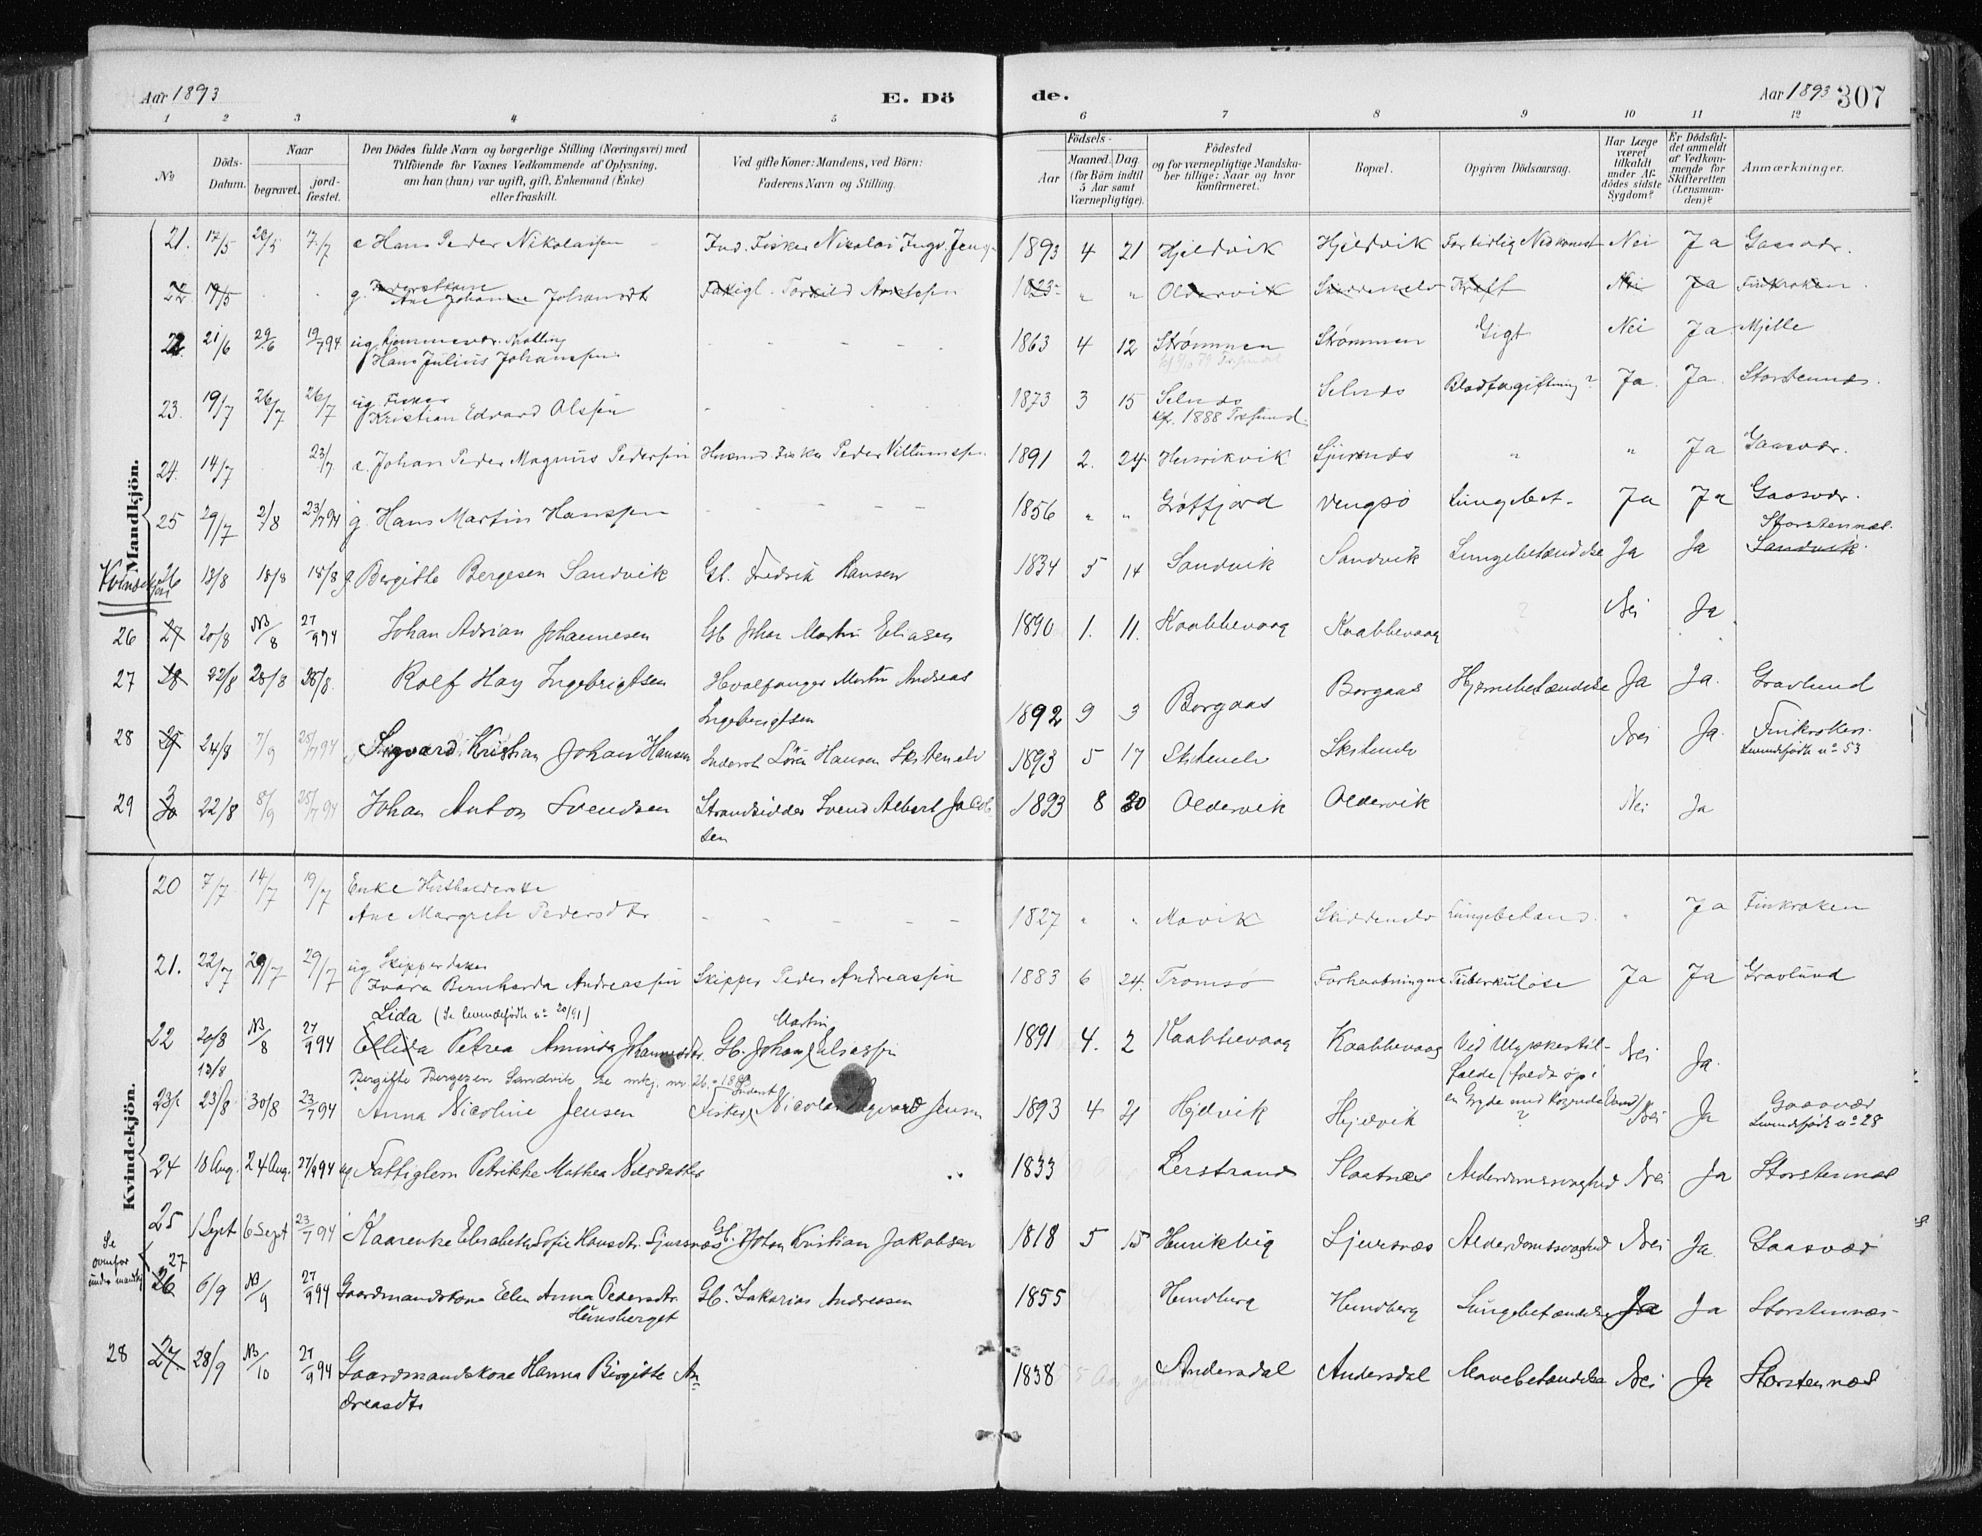 Aar 1893
E. Dö
de.
Aar 1893 307
1 2 3 4 5 6 7 8 9 10 11 12
No
Döds-Datum.
Naar
begravet.
jord-fæstet.
Den Dödes fulde Navn og borgerlige Stilling (Næringsvei) med
Tilföiende for Voxnes Vedkommende af Oplysning,
om han (hun) var ugift, gift, Enkemand (Enke)
eller fraskilt.
Ved gifte Koner: Mandens, ved Börn:
Faderens Navn og Stilling.
Födsels-
Aar
Maaned. Dag.
(for Börn indtil
5 Aar samt
Værnepligtige).
Födested
og for værnepligtige Mandska-
ber tillige: Naar og hvor
konfirmeret.
Bopæl.
Opgiven Dödsaarsag.
Har Læge
været
tilkaldt
under Af-
dödes sidste
Sygdom?
Er Dödsfal-
det anmeldt
af Vedkom-
mende for
Skifteretten
(Lensman-
den)?
Anmærkninger.
Mandkjön.
21. 17/5 28/5 7/7 e Hans Peder Nikolaisen Ind. Fisker Nikolai Ingv. Jens 1893 4 21 Hjeldvik Hjeldvik For tidlig Nedkomst Nei Ja Gaasvær.
22 19/5 g. Ane Johanne Johansdt 1823 " " Oldervik Kræft Nei Ja Finkroken.
22 21/6 29/6 19/7 94 ug.
Hans Julius Johansen - - - - 1863 4 12 Strømmen Strømmen Gigt Nei Ja Mjelle
23. 19/7 26/7 26/7 ug. Fisker
Kristian Edvard Olsen - - - - 1873 3 15 Selnæs Selnæs Blodforgiftning? Ja. Ja. Storstennæs.
kf. 1888 Tresund.
24. 14/7 23/7 e. Johan Peder Magnus Pedersen Husmd. Fisker Peder Villumsen 1891 2. 24. Henrikvik Sjursnæs " " Ja Gaasvær.
25 29/7 2/8 23/7 94 g. Hans Martin Hanssen - - - - 1856 " " Grøtfjord Vengsø Lungebet. Ja Ja Gaasvær.
Kvindekjøn
26 13/8 18/8 18/8 g Bergitte Bergesen Sandvik Gb. Fredrik Hansen 1834 5 14 Sandvik Sandvik Lungebetændelse Ja Ja Storstennæs.
Sandvik.
26 27 20/8 NB/8 27/9 94 Johan Adrian Johannesen Gb Johan Martin Eliasen 1890 1. 11. Kaabbevaag Kaabbevaag ? Nei Ja
27 28 22/8 28/8 28/8. Rolf Hay Ingebrigtsen Hvalfanger Martin Andreas
Ingebrigtsen 1892 9 3 Borgaas Borgaas Hjernebetændelse Ja Ja. Gravlund
28 29 24/8 7/9 25/7 94 Sigvard Kristian Johan Hansen Inderst Sören Hansen Skittenelv 1893 5 17 Skittenelv Skittenelv ? Nei Ja. Finkroken.
Levendefødte no 53
29 30 22/8 8/9 25/7 94 Johan Anton Svendsen Strandsidder Svend Albert Jacob
sen 1893 8 20 Oldervik Oldervik Nei Ja
Kvindekjön.
20 7/7 14/7 19/7 Enke Husholderske
Ane Margrethe Pedersdtr - - - - 1827 " " Mavik Skittenelv Lungebetænd. " Ja Finkroken
21. 22/7 29/7 29/7 ug. Skipperdatter
Ivara Bernharda Andreassen Skipper Peder Andreassen 1883 6 24. Tromsø Forhaabningen Tuberkulose Ja Ja Gravlund
Lida (Se levendefødte no 20/91)
22 20/8 NB/8 27/9 94 Ellida Petrea Aminda Johannesdtr. Gb. Johan Martin Eliassen 1891 4. 2 Kaabbevaag Kaabbevaag Ved Ulykkestil-
fælde (faldt op i
en Gryde med kogende Vand) Nei Ja.
13/8 Bergitte Bergesen Sandvik se mkj. no 26 - 1893
23 23/8 30/8 23/7 94 Anna Nicoline Jensen Fisker Inderst Nicolai Ingvard Jensen 1893 4 21 Hjelvik Hjelvik ? Nei Ja Gaasvær
Levendefødte no 28
24 18 Aug. 24 Aug. 27/9 94 ug Fattiglem Petrikke Mathea Nilsdatter " 1833 Lerstrand Slaatnæs Alderdomssvaghed Nei Ja Storstennæs
25 1 Sept 6 Sept 23/7 94 Kaarenke Elisabeth Sofie Hansdtr. Sjursnæs Gb. Johan Kristian Jakobsen 1818 5 15 Henrikvig Sjursnæs Alderdomssvaghed Nei Ja. Gaasvær
Se
ovenfor
under mandkj.
27
26 6/9 NB/9 27/9 94 Gaardmandskone Ellen Anna Pedersdtr
Heinsberget Gb. Zakarias Andreasen 1855 Hundberg Hundberg Lungebetændelse Ja Ja Storstennæs
28 27. 28/9 NB/10 27/9 94 Gaardmandskone Hanna Birgitte An-
dreasdtr 1838 Andersdal Andersdal Mavebetændelse Nei Ja Storstennæs